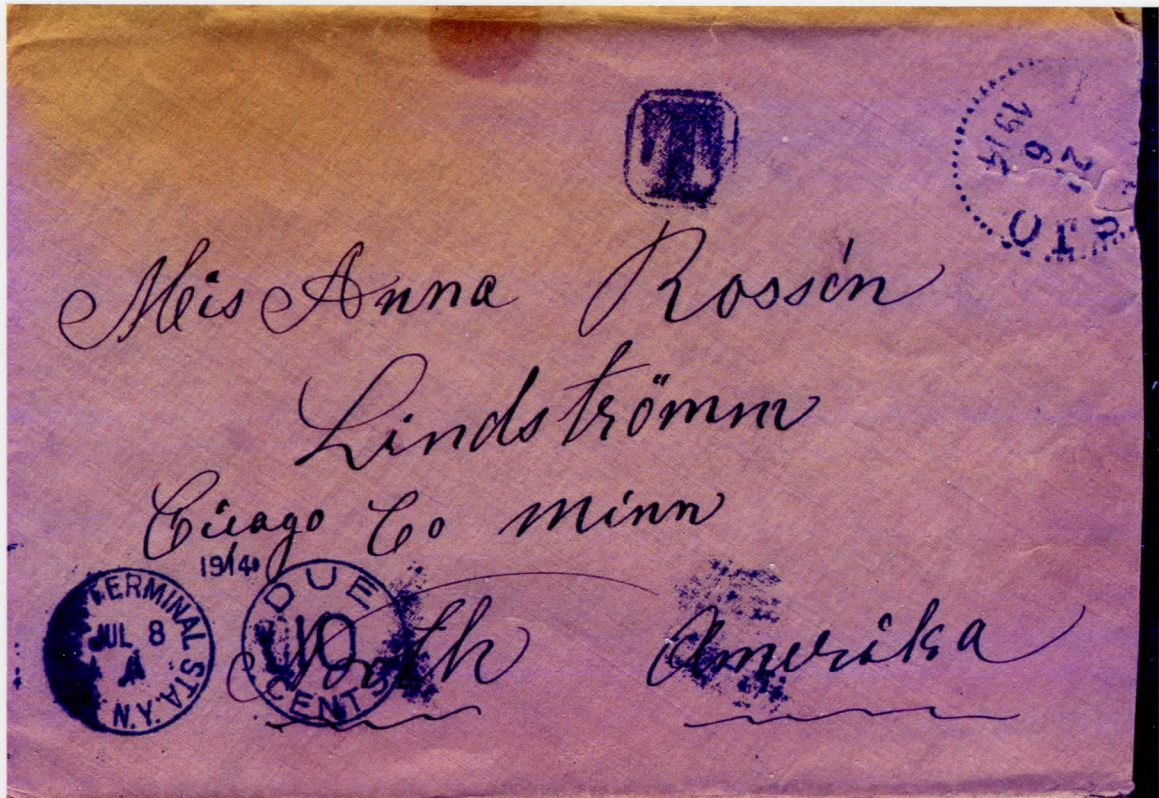 T
26
1914
Mis Anna Rossén
Lindströmm
Cicago Co Minn
1914
TERMINAL STA. N.Y.
JUL 8
A
DUE 10 CENTS
North Amerika